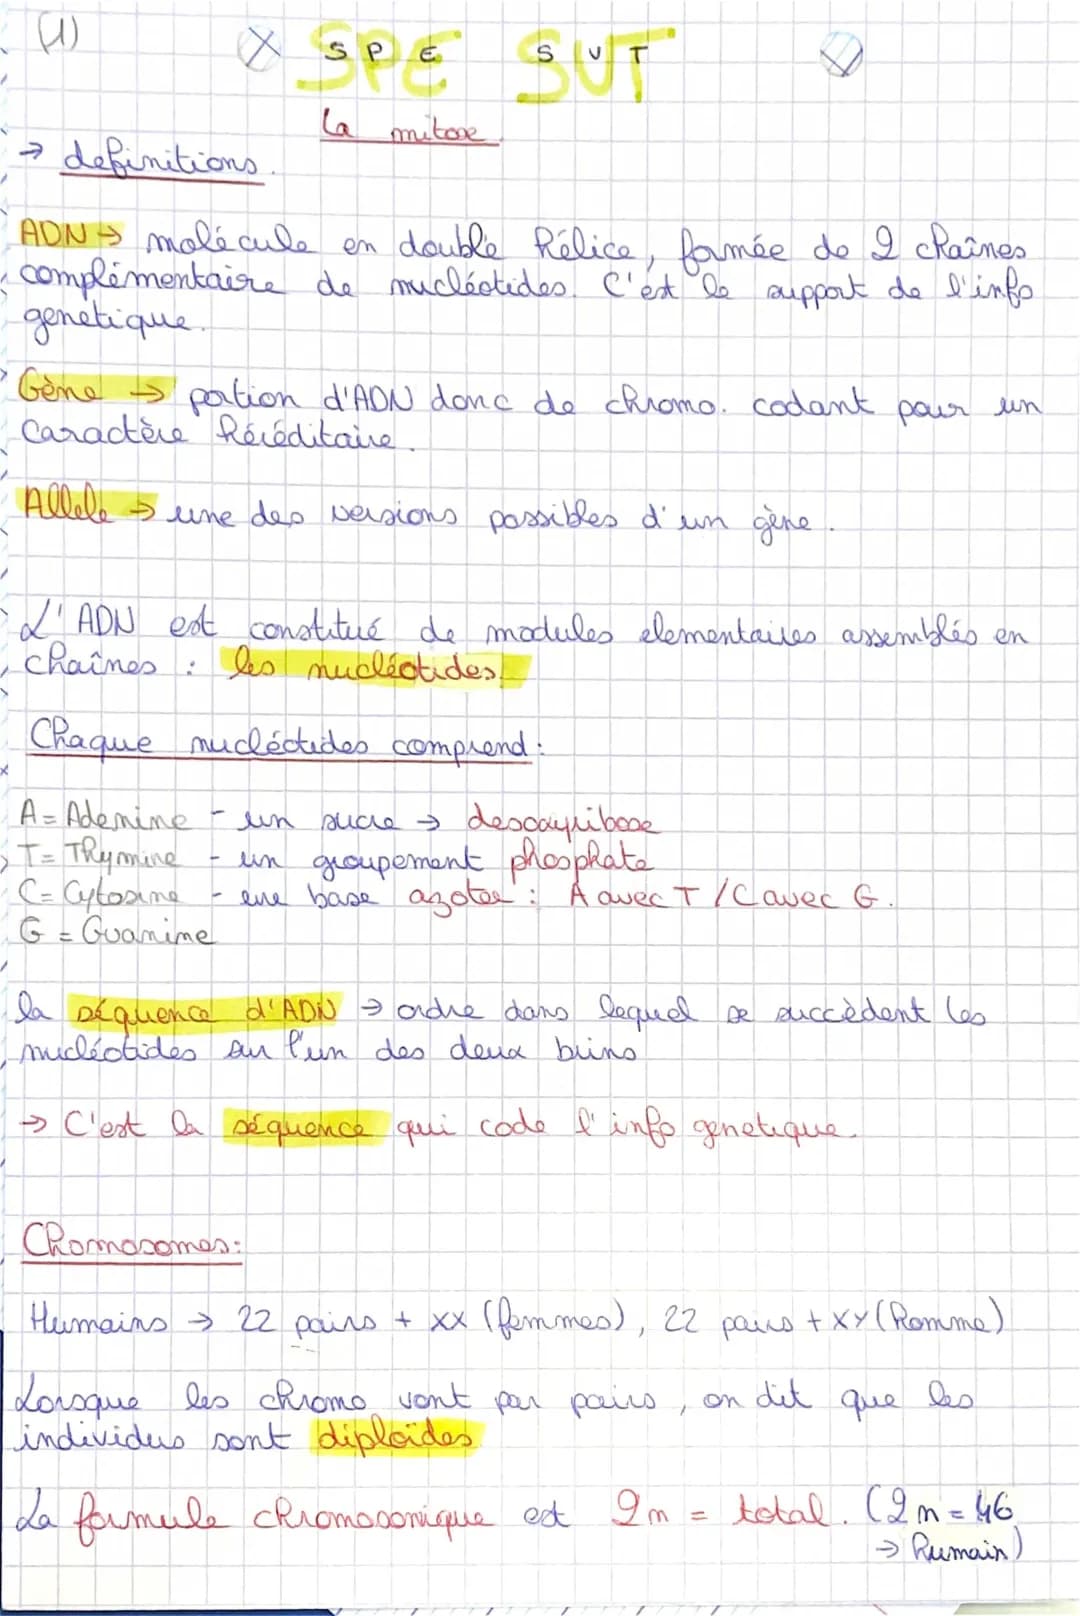 (1)
SPE SVT
La mitose
→ definitions.
ADN → molécule en double hélice, formée de 2 chaînes
complémentaire de nucléotides. C'est le support de l'info
genetique.
Gène → portion d'ADN donc de chromo. codant pour un
caractère héréditaire.
Allele → une des versions possibles d'un gène.
L'ADN est constitué de modules elementaires assemblés en
chaînes : les nucléotides.
Chaque nucléotides comprend :
A = Adenine - un sucre → desoxyribose
T = Thymine - un groupement phosphate
C = Cytosine - une base azotee : A avec T / C avec G.
G = Guanine
la séquence d'ADN → ordre dans lequel se succèdent les
nucléotides sur l'un des deux brins
→ C'est la séquence qui code l'info genetique.
Chomosomes :
Humains → 22 pairs + xx (femmes), 22 pairs + xy (homme)
Lorsque les chromo vont par pairs, on dit que les
individus sont diploïdes
La formule chromosonique est 2n = total. (2n = 46
→ humain)